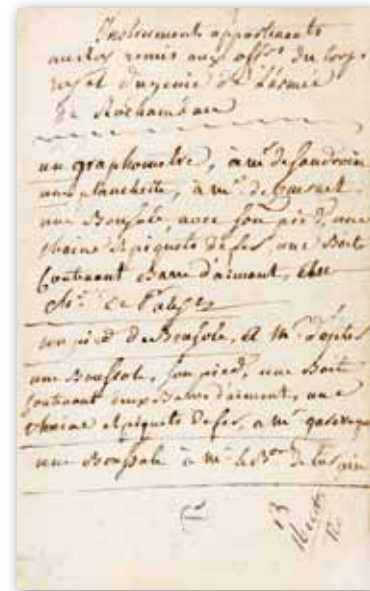 Instruments appartenants
au Roy remis aux offrs du Corps
royal du génie de l'armée
de Rochambeau
un graphometre, à mr. de Gandroin
une planchette, à mr. de
une Boussole, avec son pied, une
chaine et piquets de fer, une Boete
Contenant Barre d'aiment, chez
Mr. Ce
un pied de Boussole, à Mr. D'oyles
une Boussole, son pied, une Boete
Contenant deux Barre d'aiment, une
chaine et piquets de fer, a mr.
une Boussole à mr. le Bon de
13